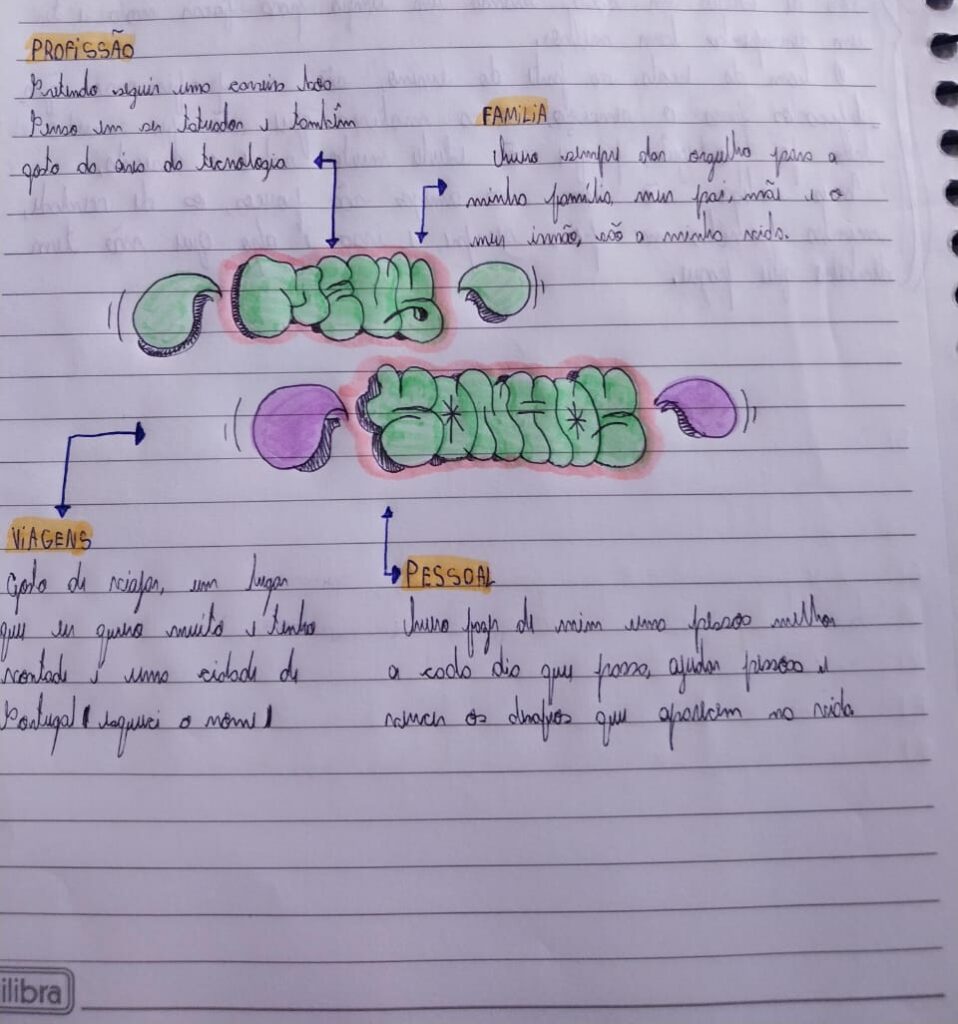 PROFISSÃO
Pretendo seguir uma carreira boa
Penso em ser tatuador e também
gosto da área da tecnologia
FAMILIA
Quero sempre dar orgulho para a
minha família, meu pai, mãe e o
meu irmão, são a minha vida.
MEUS
SONHOS
VIAGENS
Gosto de viajar, um lugar
que eu quero muito e tenho
vontade é uma cidade de
Portugal (esqueci o nome)
PESSOAL
Quero fazer de mim uma pessoa melhor
a cada dia que passa, ajudar pessoas e
vencer os desafios que aparecem na vida
ilibra